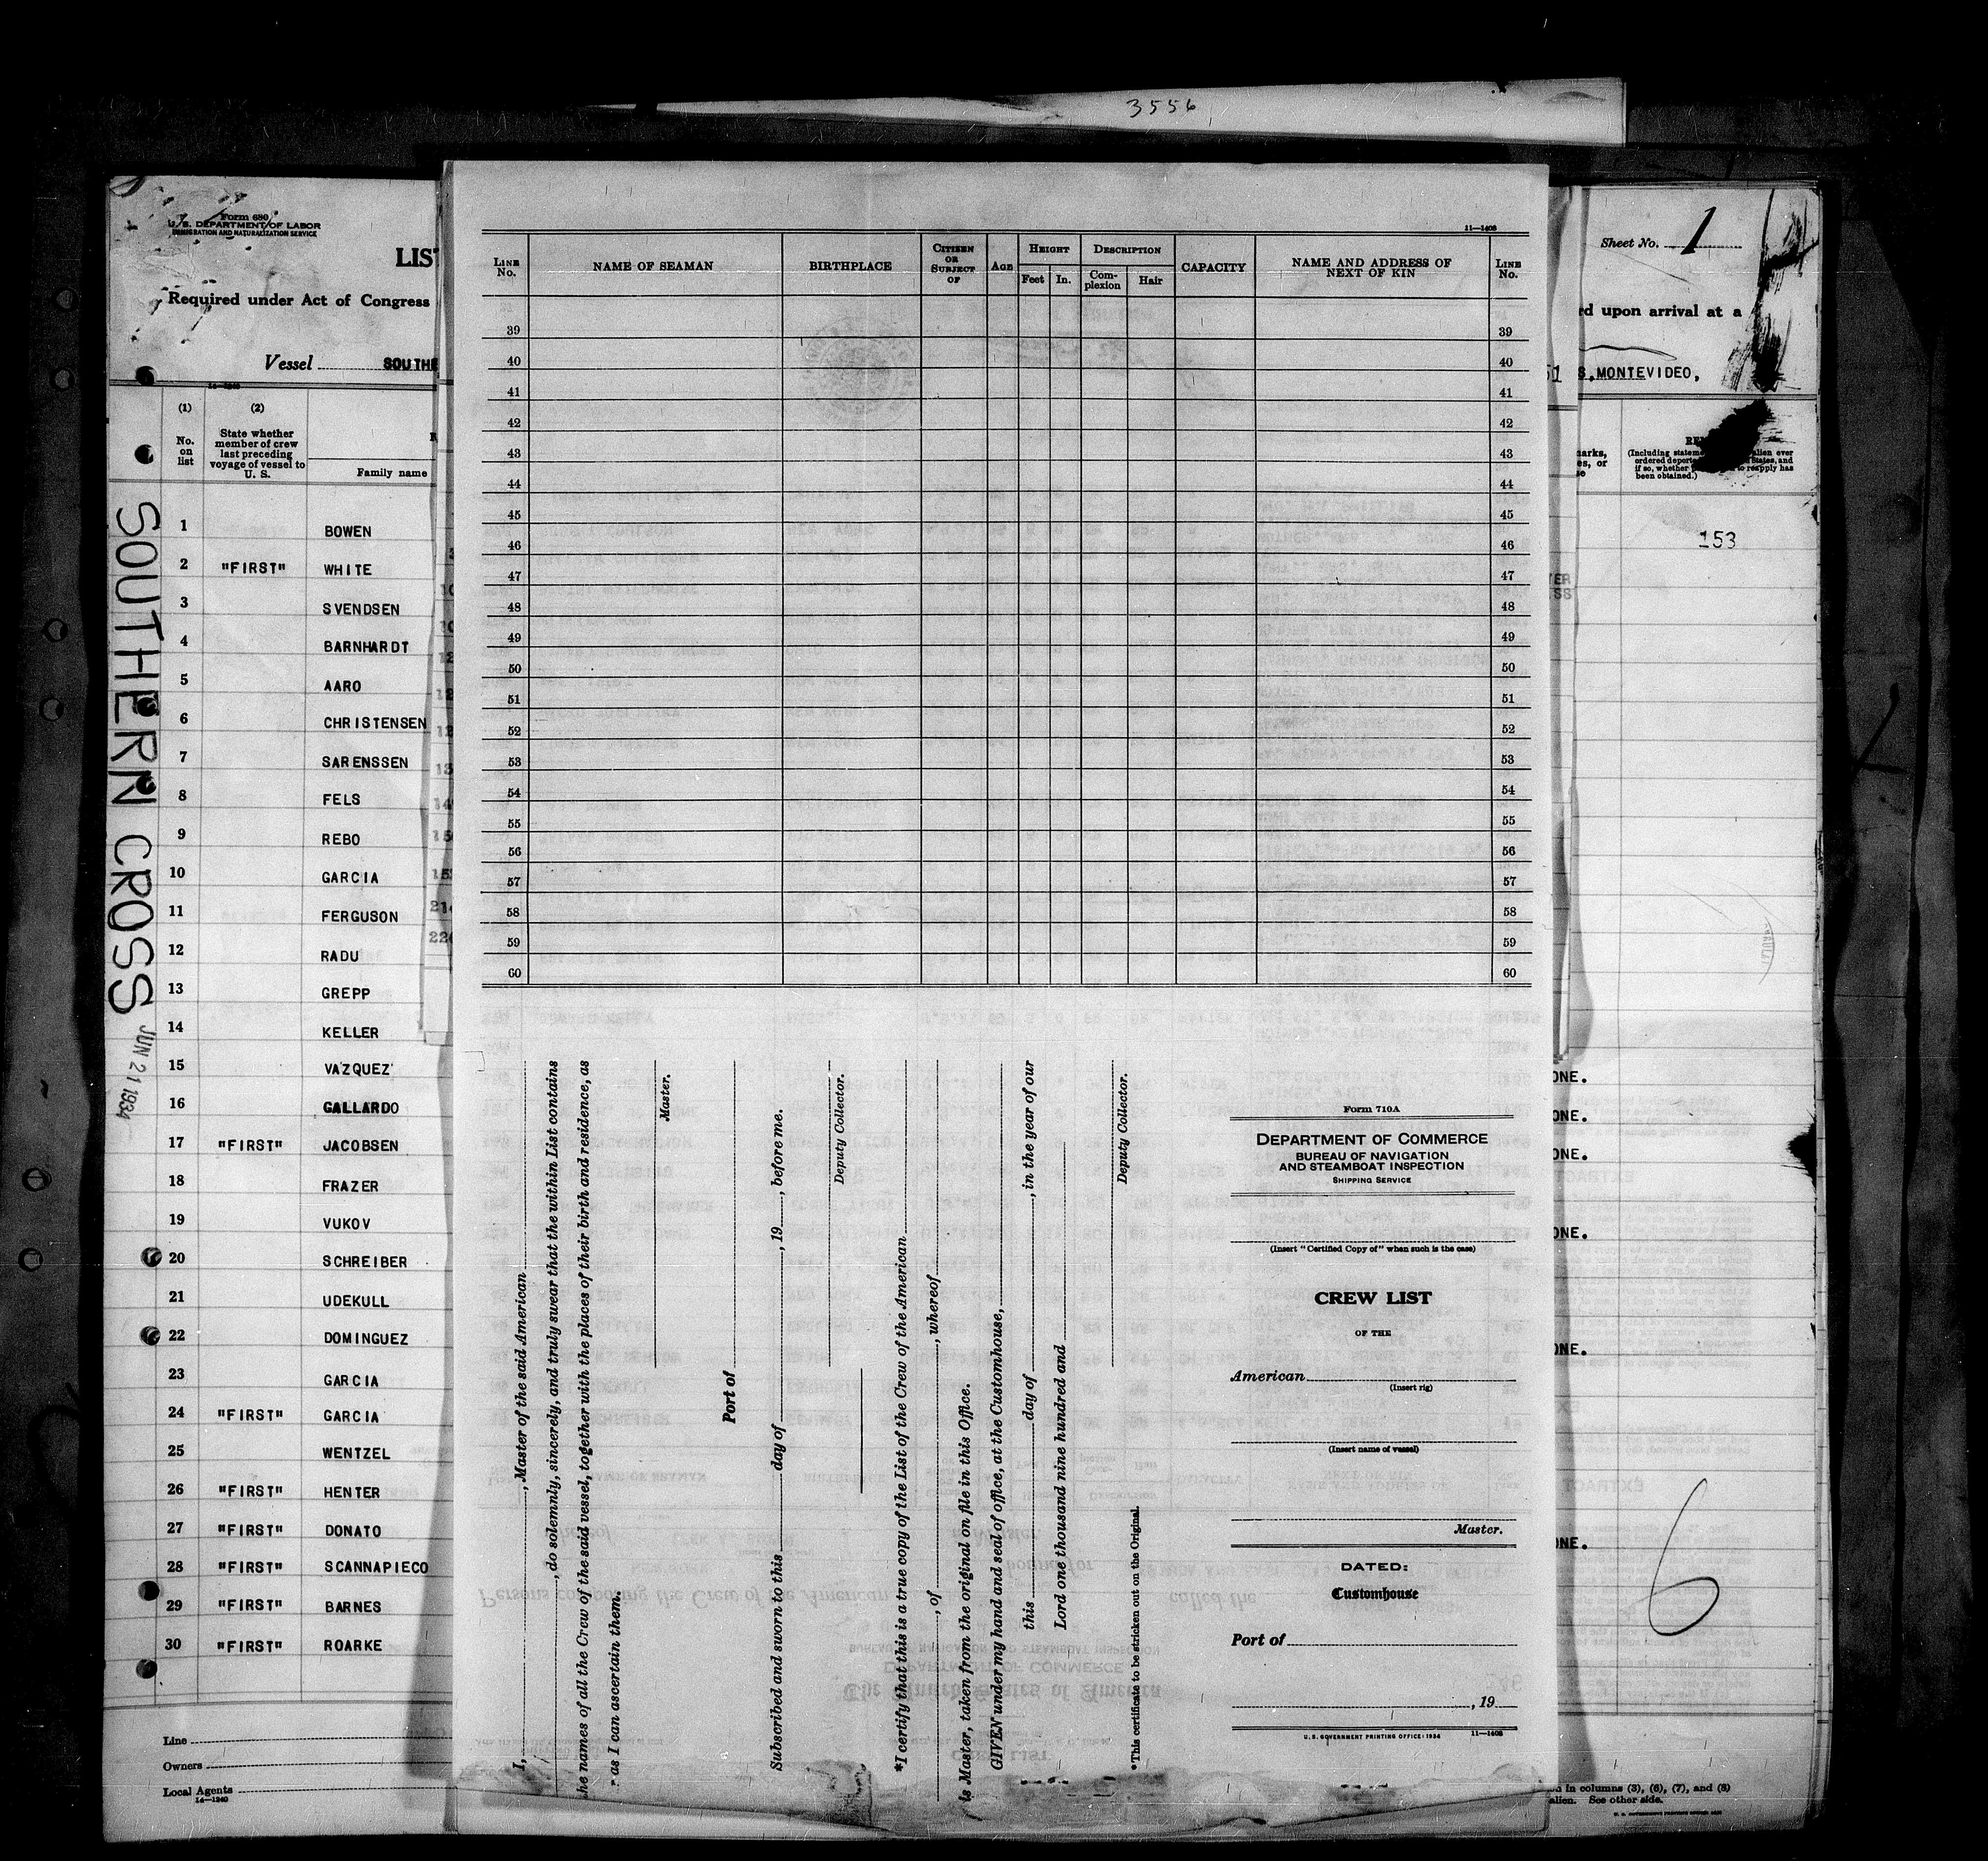 3556
Form 680
U. S. DEPARTMENT OF LABOR
IMMIGRATION AND NATURALIZATION SERVICE
LIS
Required under Act of Congress
Vessel SOUTHE
14—1240
(1) (2)
No. on list
State whether member of crew last preceding voyage of vessel to U. S.
Family name
1 BOWEN
2 "FIRST" WHITE
3 SVENDSEN
4 BARNHARDT
5 AARO
6 CHRISTENSEN
7 SARENSSEN
8 FELS
9 REBO
10 GARCIA
11 FERGUSON
12 RADU
13 GREPP
14 KELLER
15 VAZQUEZ
16 GALLARDO
17 "FIRST" JACOBSEN
18 FRAZER
19 VUKOV
20 SCHREIBER
21 UDEKULL
22 DOMINGUEZ
23 GARCIA
24 "FIRST" GARCIA
25 WENTZEL
26 "FIRST" HENTER
27 "FIRST" DONATO
28 "FIRST" SCANNAPIECO
29 "FIRST" BARNES
30 "FIRST" ROARKE
Line
Owners
Local Agents
14—1240
SOUTHERN CROSS
JUN 21 1934
11—1408
LINE No.
NAME OF SEAMAN
BIRTHPLACE
CITIZEN OR SUBJECT OF
AGE
HEIGHT
Feet In.
DESCRIPTION
Complexion Hair
CAPACITY
NAME AND ADDRESS OF NEXT OF KIN
LINE No.
39 39
40 40
41 41
42 42
43 43
44 44
45 45
46 46
47 47
48 48
49 49
50 50
51 51
52 52
53 53
54 54
55 55
56 56
57 57
58 58
59 59
60 60
I, , Master of the said American
, do solemnly, sincerely, and truly swear that the within List contains
he names of all the Crew of the said vessel, together with the places of their birth and residence, as
r as I can ascertain them.
Master.
Port of
Subscribed and sworn to this day of , 19 , before me.
Deputy Collector.
*I certify that this is a true copy of the List of the Crew of the American
, of , whereof
is Master, taken from the original on file in this Office.
GIVEN under my hand and seal of office, at the Customhouse,
this day of , in the year of our
Lord one thousand nine hundred and
Deputy Collector.
*This certificate to be stricken out on the Original.
Form 710A
DEPARTMENT OF COMMERCE
BUREAU OF NAVIGATION
AND STEAMBOAT INSPECTION
SHIPPING SERVICE
(Insert "Certified Copy of" when such is the case)
CREW LIST
OF THE
American
(Insert rig)
(Insert name of vessel)
Master.
DATED:
Customhouse
Port of
, 19
U. S. GOVERNMENT PRINTING OFFICE: 1934 11—1408
Sheet No. 1
rd upon arrival at a
S, MONTEVIDEO,
(Including statement
alien ever
ordered deported
States, and
if so, whether
to reapply has
been obtained.)
153
ONE.
ONE.
ONE.
ONE.
ONE.
ONE.
6
in columns (3), (6), (7), and (8)
alien. See other side.